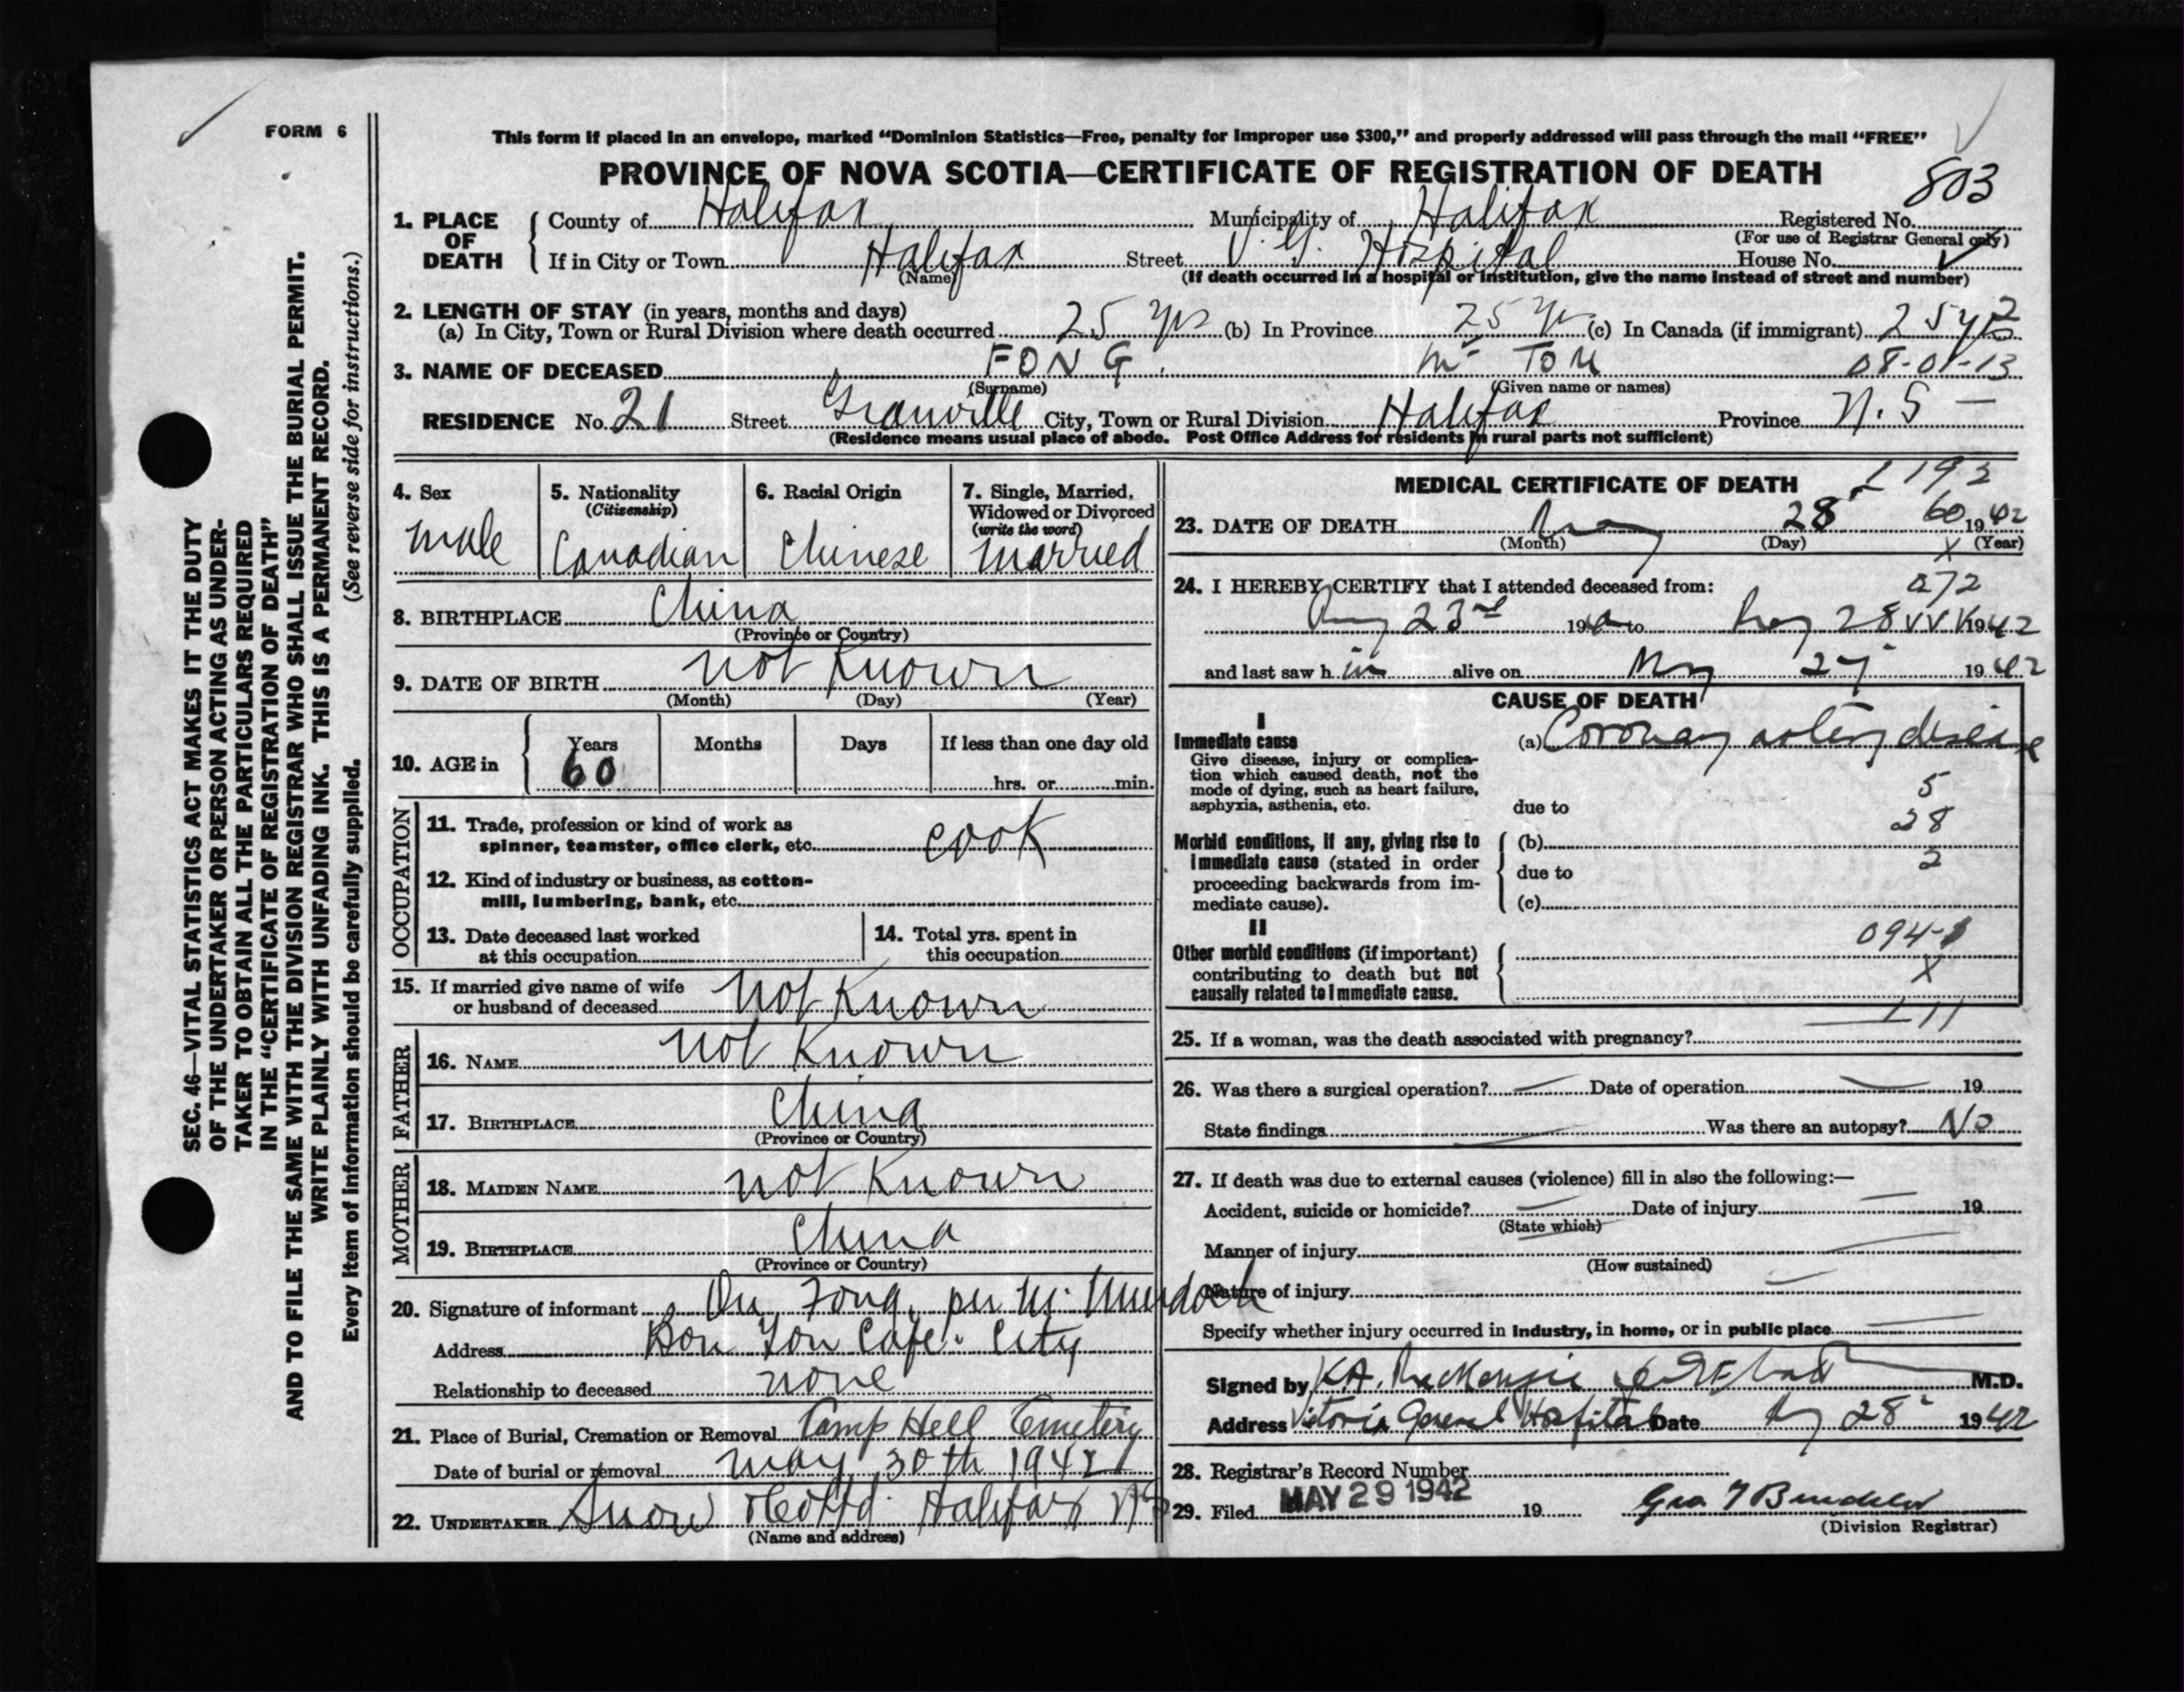 FORM 6
This form if placed in an envelope, marked “Dominion Statistics—Free, penalty for improper use $300,” and properly addressed will pass through the mail “FREE”
PROVINCE OF NOVA SCOTIA—CERTIFICATE OF REGISTRATION OF DEATH
803
1. PLACE OF DEATH { County of Halifax Municipality of Halifax Registered No.
(For use of Registrar General only)
If in City or Town Halifax Street V. G. Hospital House No.
(Name) (If death occurred in a hospital or institution, give the name instead of street and number)
2. LENGTH OF STAY (in years, months and days)
(a) In City, Town or Rural Division where death occurred 25 yrs (b) In Province 25 yrs (c) In Canada (if immigrant) 25 yrs
3. NAME OF DECEASED FONG. Mr TOM 08-01-13
(Surname) (Given name or names)
RESIDENCE No. 21 Street Granville City, Town or Rural Division Halifax Province N.S —
(Residence means usual place of abode. Post Office Address for residents in rural parts not sufficient)
4. Sex
male
5. Nationality
(Citizenship)
Canadian
6. Racial Origin
Chinese
7. Single, Married,
Widowed or Divorced
(write the word)
Married
8. BIRTHPLACE China
(Province or Country)
9. DATE OF BIRTH not Known
(Month) (Day) (Year)
10. AGE in { Years Months Days If less than one day old
60 hrs. or min.
OCCUPATION
11. Trade, profession or kind of work as
spinner, teamster, office clerk, etc. cook
12. Kind of industry or business, as cotton-
mill, lumbering, bank, etc.
13. Date deceased last worked
at this occupation
14. Total yrs. spent in
this occupation
15. If married give name of wife
or husband of deceased not Known
FATHER
16. NAME not Known
17. BIRTHPLACE China
(Province or Country)
MOTHER
18. MAIDEN NAME not Known
19. BIRTHPLACE China
(Province or Country)
20. Signature of informant Fong, per M. Murdoch
Address Bon Ton Cafe. City
Relationship to deceased none
21. Place of Burial, Cremation or Removal Camp Hill Cemetery
Date of burial or removal May 30th 1942
22. UNDERTAKER Snow & Co Ltd. Halifax NS
(Name and address)
MEDICAL CERTIFICATE OF DEATH
23. DATE OF DEATH May 28 60 1942
(Month) (Day) (Year)
X
24. I HEREBY CERTIFY that I attended deceased from:
072
23rd 19 to May 28 1942
and last saw h im alive on May 27 1942
CAUSE OF DEATH
I
Immediate cause
Give disease, injury or complica-
tion which caused death, not the
mode of dying, such as heart failure,
asphyxia, asthenia, etc.
(a) Coronary artery disease
5
due to
28
Morbid conditions, if any, giving rise to
immediate cause (stated in order
proceeding backwards from im-
mediate cause).
(b)
2
due to
(c)
II
Other morbid conditions (if important)
contributing to death but not
causally related to immediate cause.
094-1
X
25. If a woman, was the death associated with pregnancy?
26. Was there a surgical operation? — Date of operation — 19
State findings — Was there an autopsy? No
27. If death was due to external causes (violence) fill in also the following:—
Accident, suicide or homicide? — Date of injury — 19
(State which)
Manner of injury —
(How sustained)
Nature of injury —
Specify whether injury occurred in industry, in home, or in public place —
Signed by K.A. MacKenzie M.D.
Address Victoria General Hospital Date May 28 1942
28. Registrar's Record Number
29. Filed MAY 29 1942 19
(Division Registrar)
SEC. 46—VITAL STATISTICS ACT MAKES IT THE DUTY
OF THE UNDERTAKER OR PERSON ACTING AS UNDER-
TAKER TO OBTAIN ALL THE PARTICULARS REQUIRED
IN THE “CERTIFICATE OF REGISTRATION OF DEATH”
AND TO FILE THE SAME WITH THE DIVISION REGISTRAR WHO SHALL ISSUE THE BURIAL PERMIT.
WRITE PLAINLY WITH UNFADING INK. THIS IS A PERMANENT RECORD.
Every item of information should be carefully supplied. (See reverse side for instructions.)